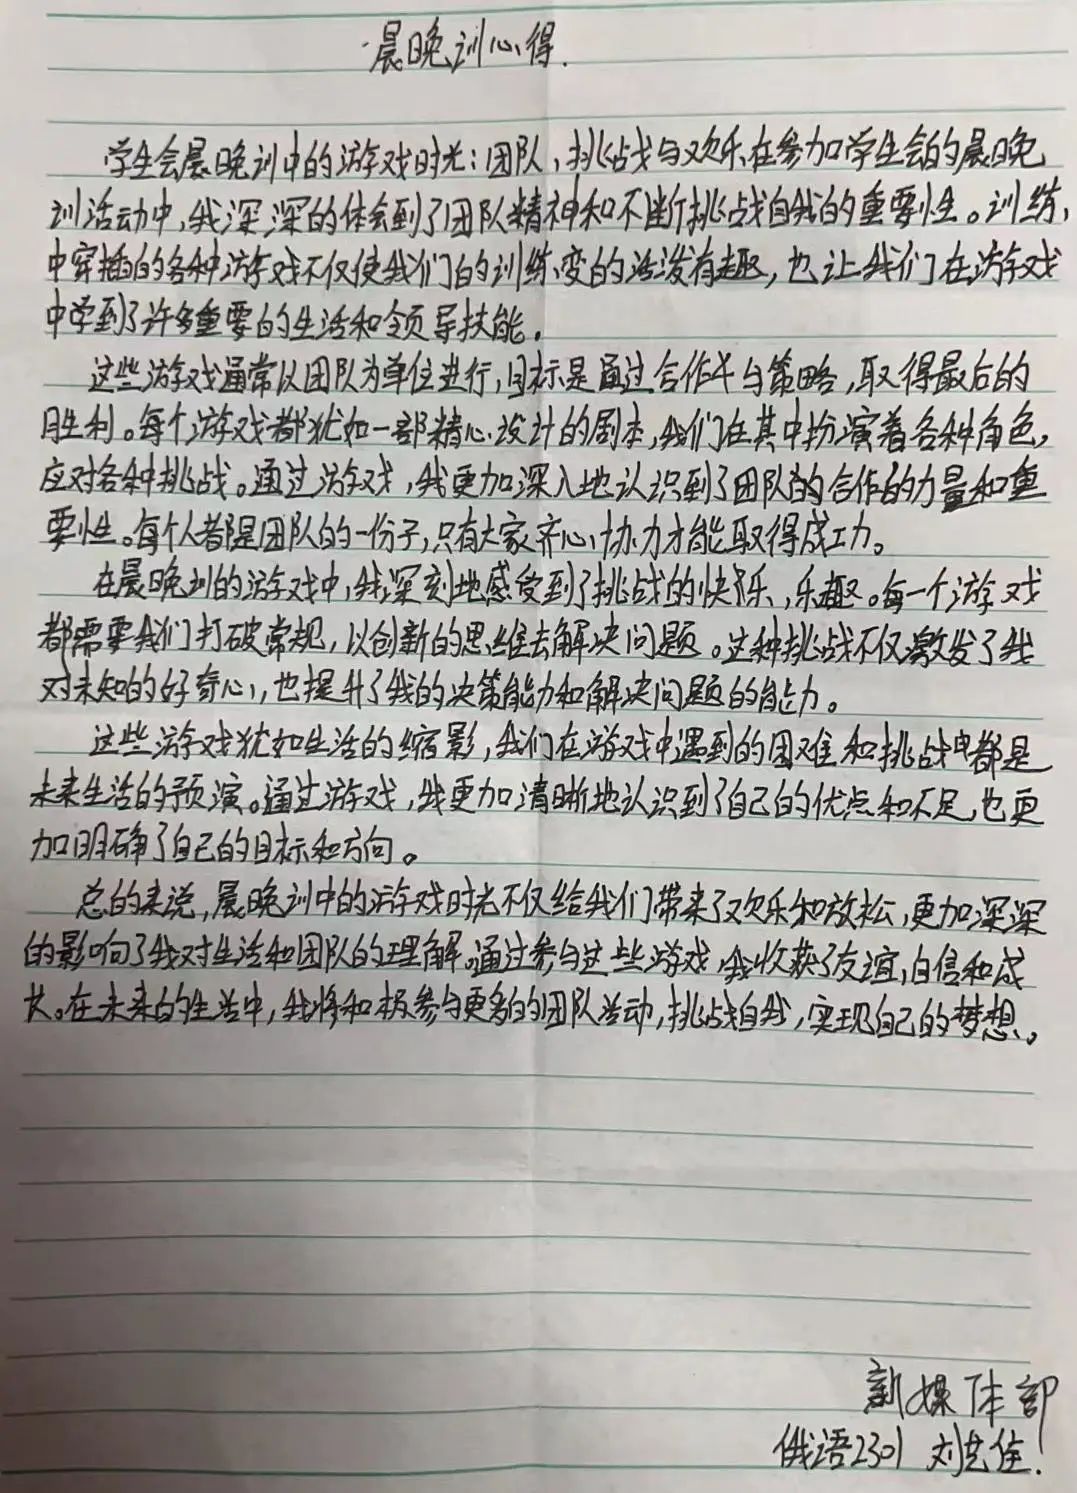 晨晚训心得.
学生会晨晚训中的游戏时光：团队，挑战与欢乐在参加学生会的晨晚
训活动中，我深深的体会到了团队精神和不断挑战自我的重要性。训练，
中穿插的各种游戏不仅使我们的训练变的活泼有趣，也让我们在游戏
中学到了许多重要的生活和领导技能。
这些游戏通常以团队为单位进行，目标是通过合作与策略，取得最后的
胜利。每个游戏都犹如一部精心设计的剧本，我们在其中扮演着各种角色，
应对各种挑战。通过游戏，我更加深入地认识到了团队的合作的力量和重
要性。每个人都是团队的一份子，只有大家齐心协力才能取得成功。
在晨晚训的游戏中，我深刻地感受到了挑战的快乐，乐趣。每一个游戏
都需要我们打破常规，以创新的思维去解决问题。这种挑战不仅激发了我
对未知的好奇心，也提升了我的决策能力和解决问题的能力。
这些游戏犹如生活的缩影，我们在游戏中遇到的困难和挑战都是
未来生活的预演。通过游戏，我更加清晰地认识到了自己的优点和不足，也更
加明确了自己的目标和方向。
总的来说，晨晚训中的游戏时光不仅给我们带来了欢乐和放松，更加深深
的影响了我对生活和团队的理解。通过参与这些游戏，我收获了友谊，自信和成
长。在未来的生活中，我将和极参与更多的团队活动，挑战自我，实现自己的梦想。
新媒体部
俄语2301 刘艺佳